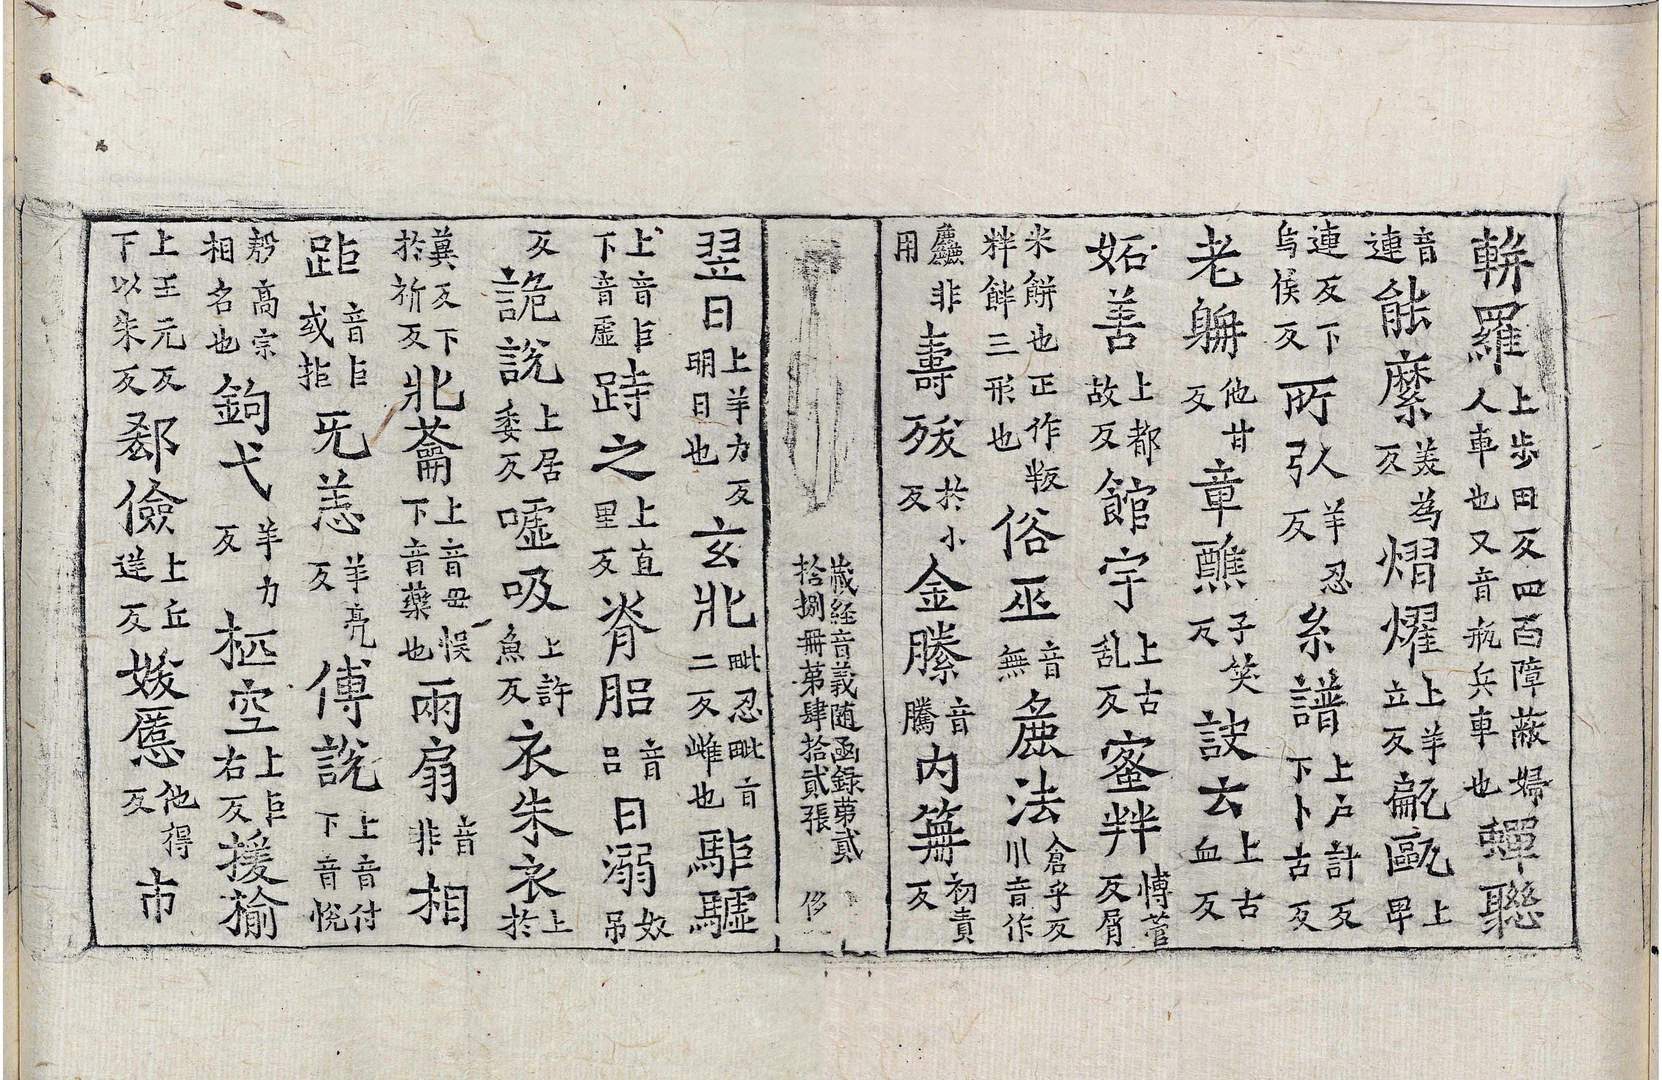 輧羅上步田反四面障蔽婦人車也又音瓶兵車也蟬聯
音連能縻美為反熠燿上羊立反甂甌上卑
連反下烏侯反所引羊忍反糸譜上戶計反下卜古反
老聃他甘反章醮子笑反訣云上古血反
妬善上都故反館宇上古乱反蜜柈愽菅反屑
米餅也正作粄粋餅三形也俗巫音無麁法倉乎反川音作
麤非用壽殀於小反金縢音騰內筭初責反
藏経音義随函録第貳拾捌冊第肆拾貳張
翌日上羊力反明日也玄牝毗忍毗旨二反雌也駏驉
上音巨下音虛跱之上直里反脊胎音呂日溺奴吊
反詭說上居委反嘘吸上許魚反衣朱衣上於
冀反下於祈反牝蘥上音母悮下音藥也雨扇音非相
距音巨或拒旡恙羊亮反傅說上音付下音悅
高宗相名也鉤弋羊力反栕空上巨右反援揄
上王元反下以朱反郄儉上丘逆反媛慝他得反市